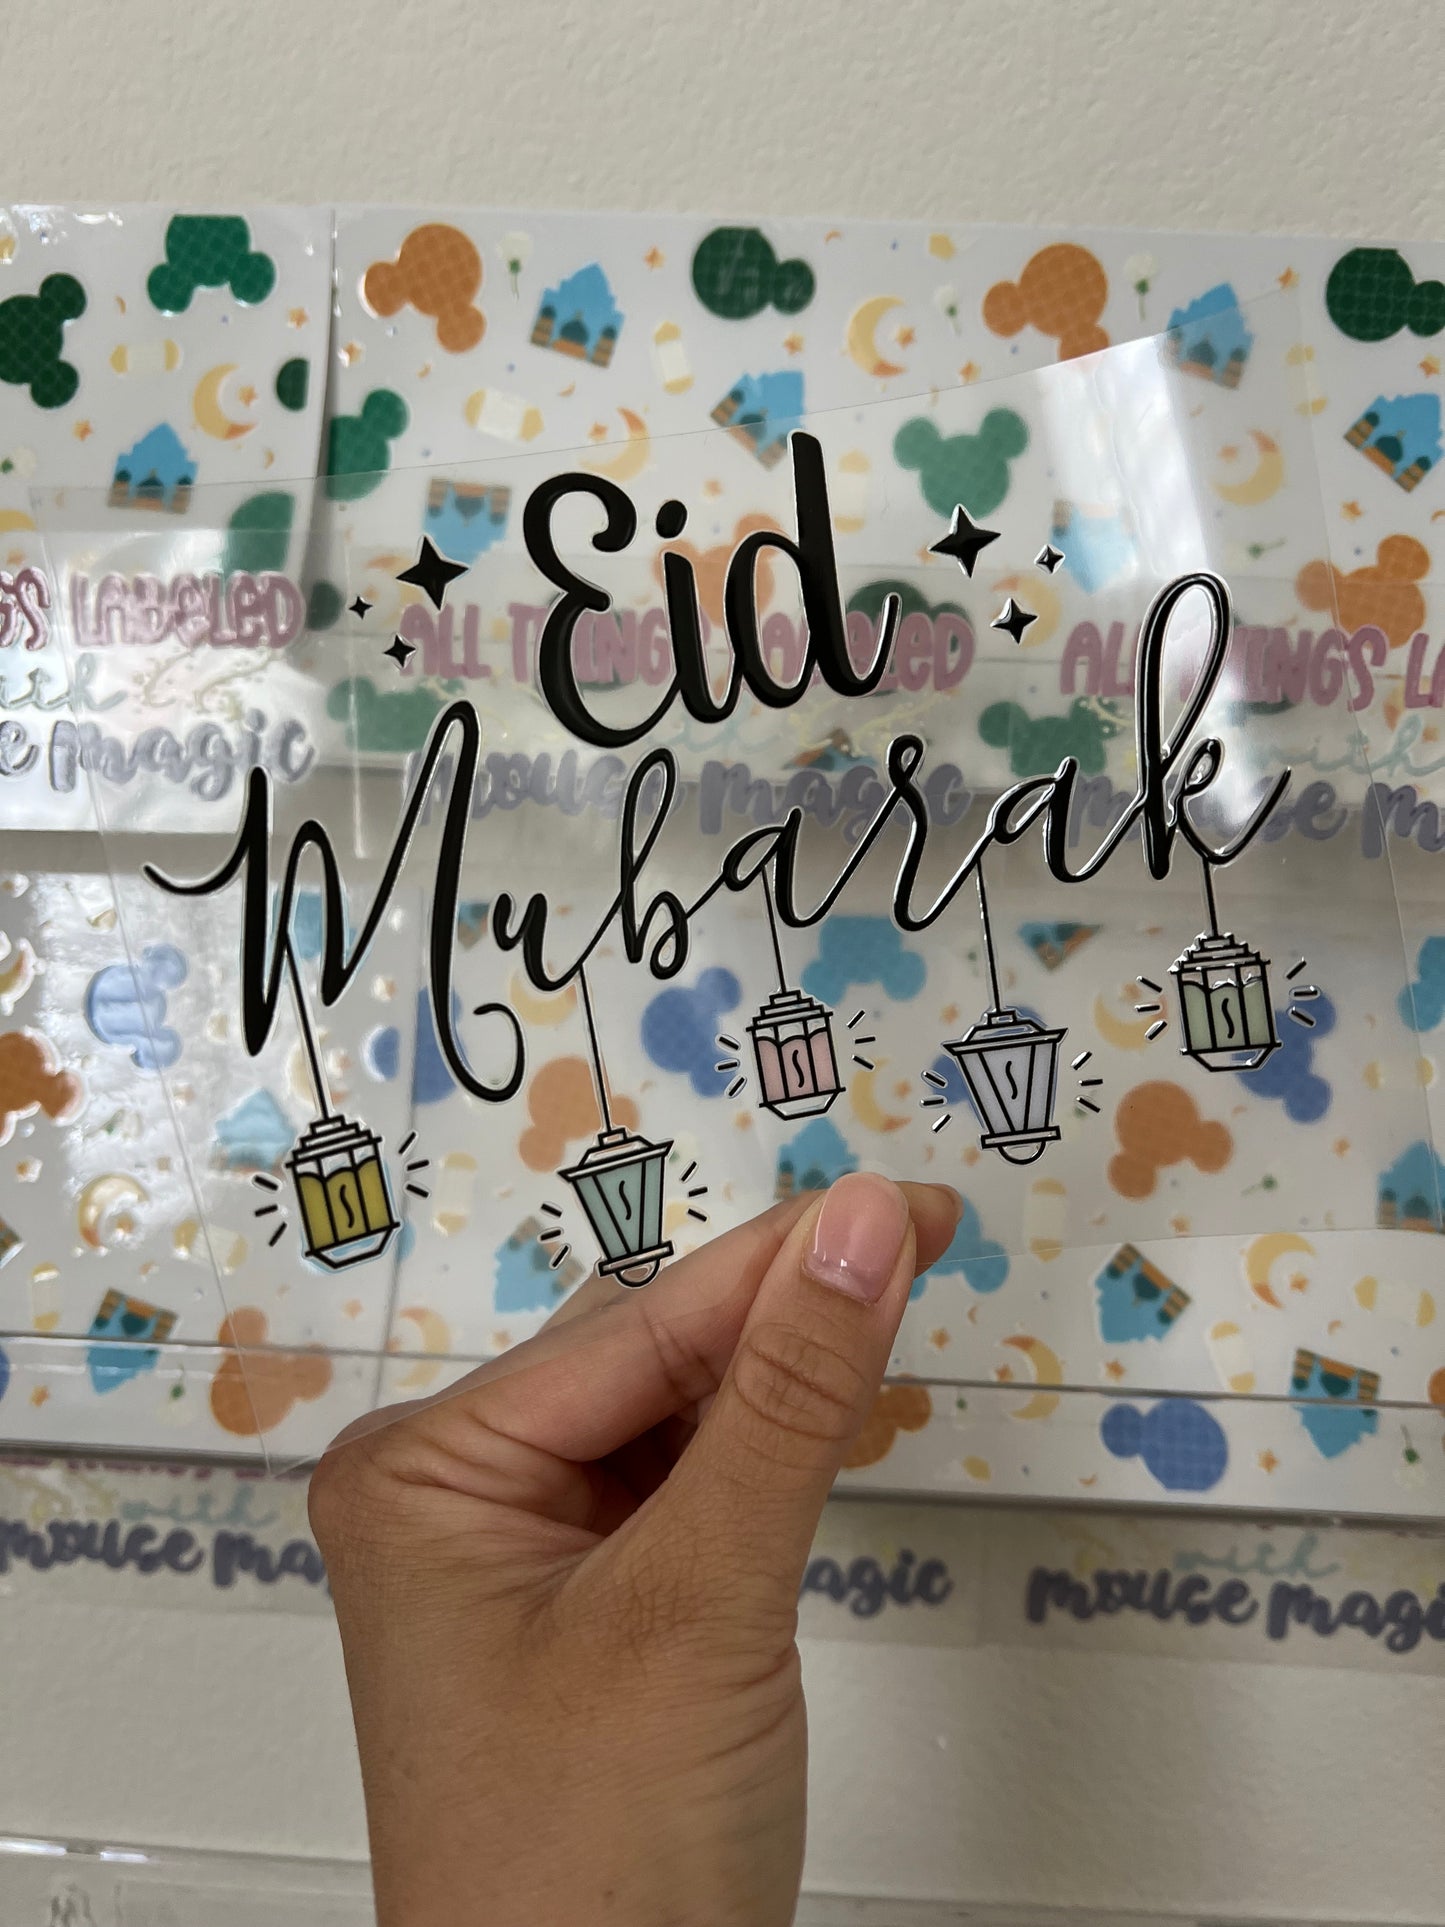 Eid
Mubarak
GS LABELED
with
e magic
ALL THINGS LABELED
with
mouse magic
ALL THINGS LA
with
mouse m
with
mouse ma
agic
with
mouse magi